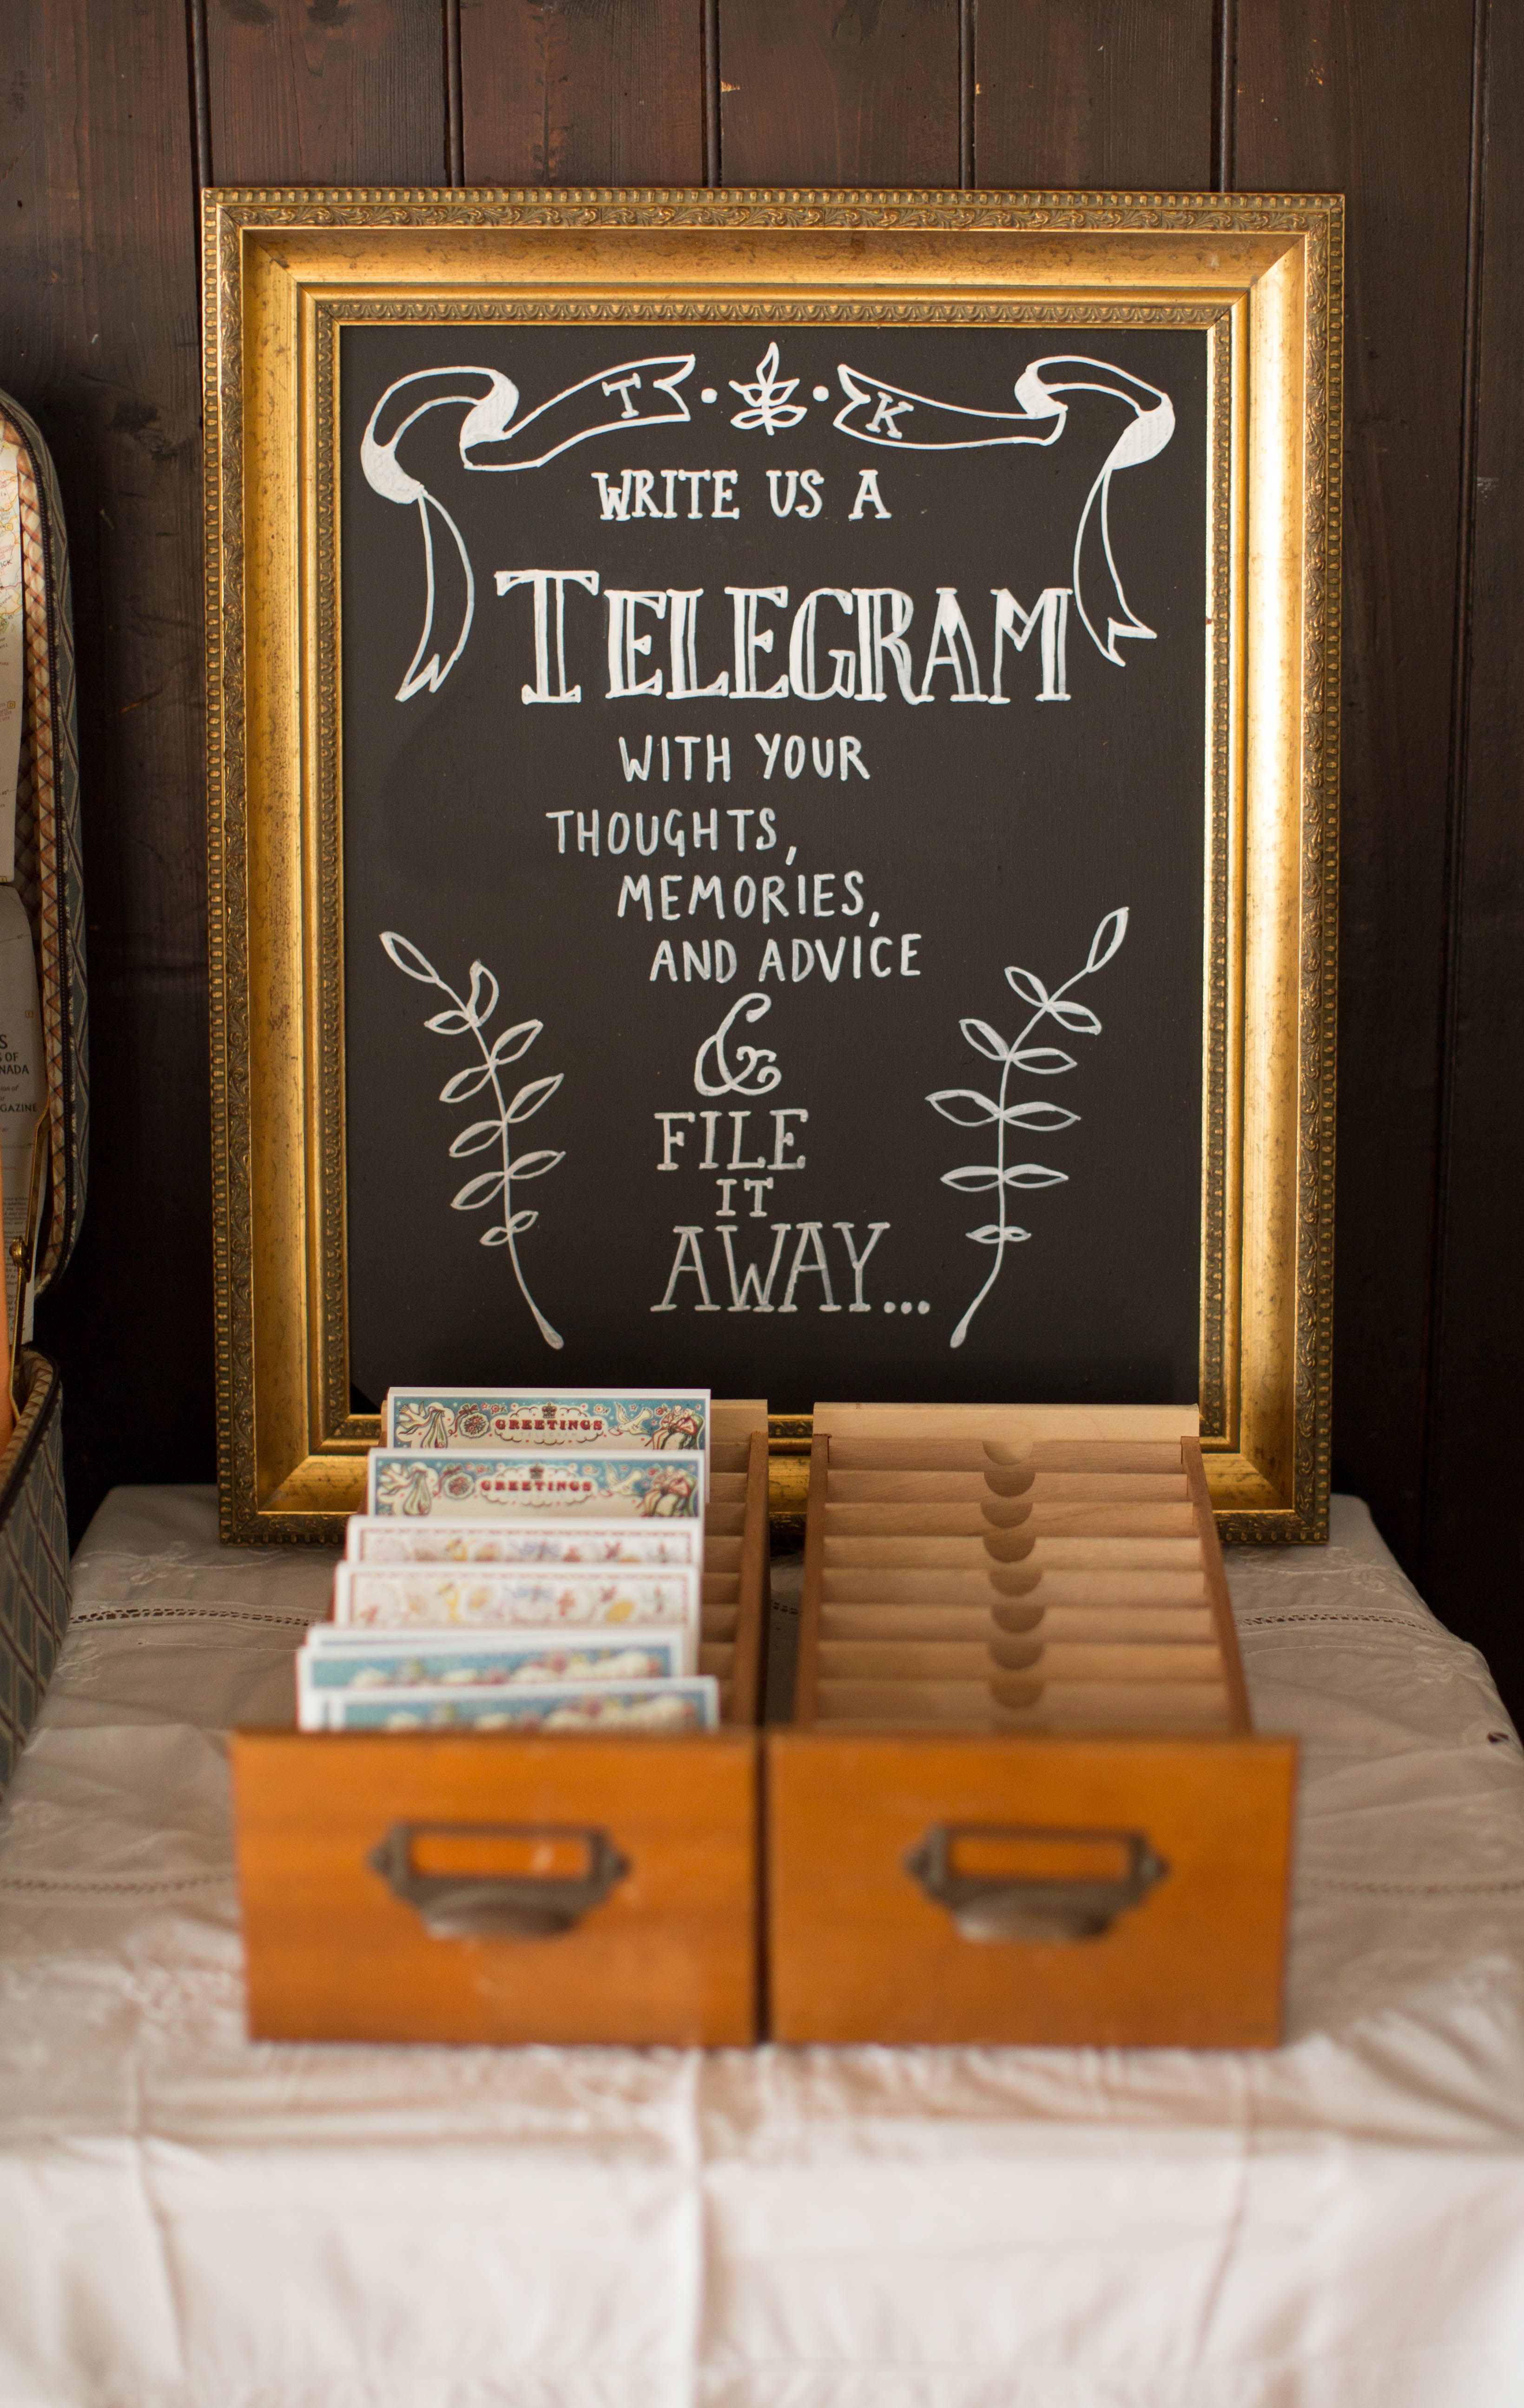 T K
WRITE US A
TELEGRAM
WITH YOUR
THOUGHTS,
MEMORIES,
AND ADVICE
&
FILE
IT
AWAY...
GREETINGS
GREETINGS
NADA
GAZINE